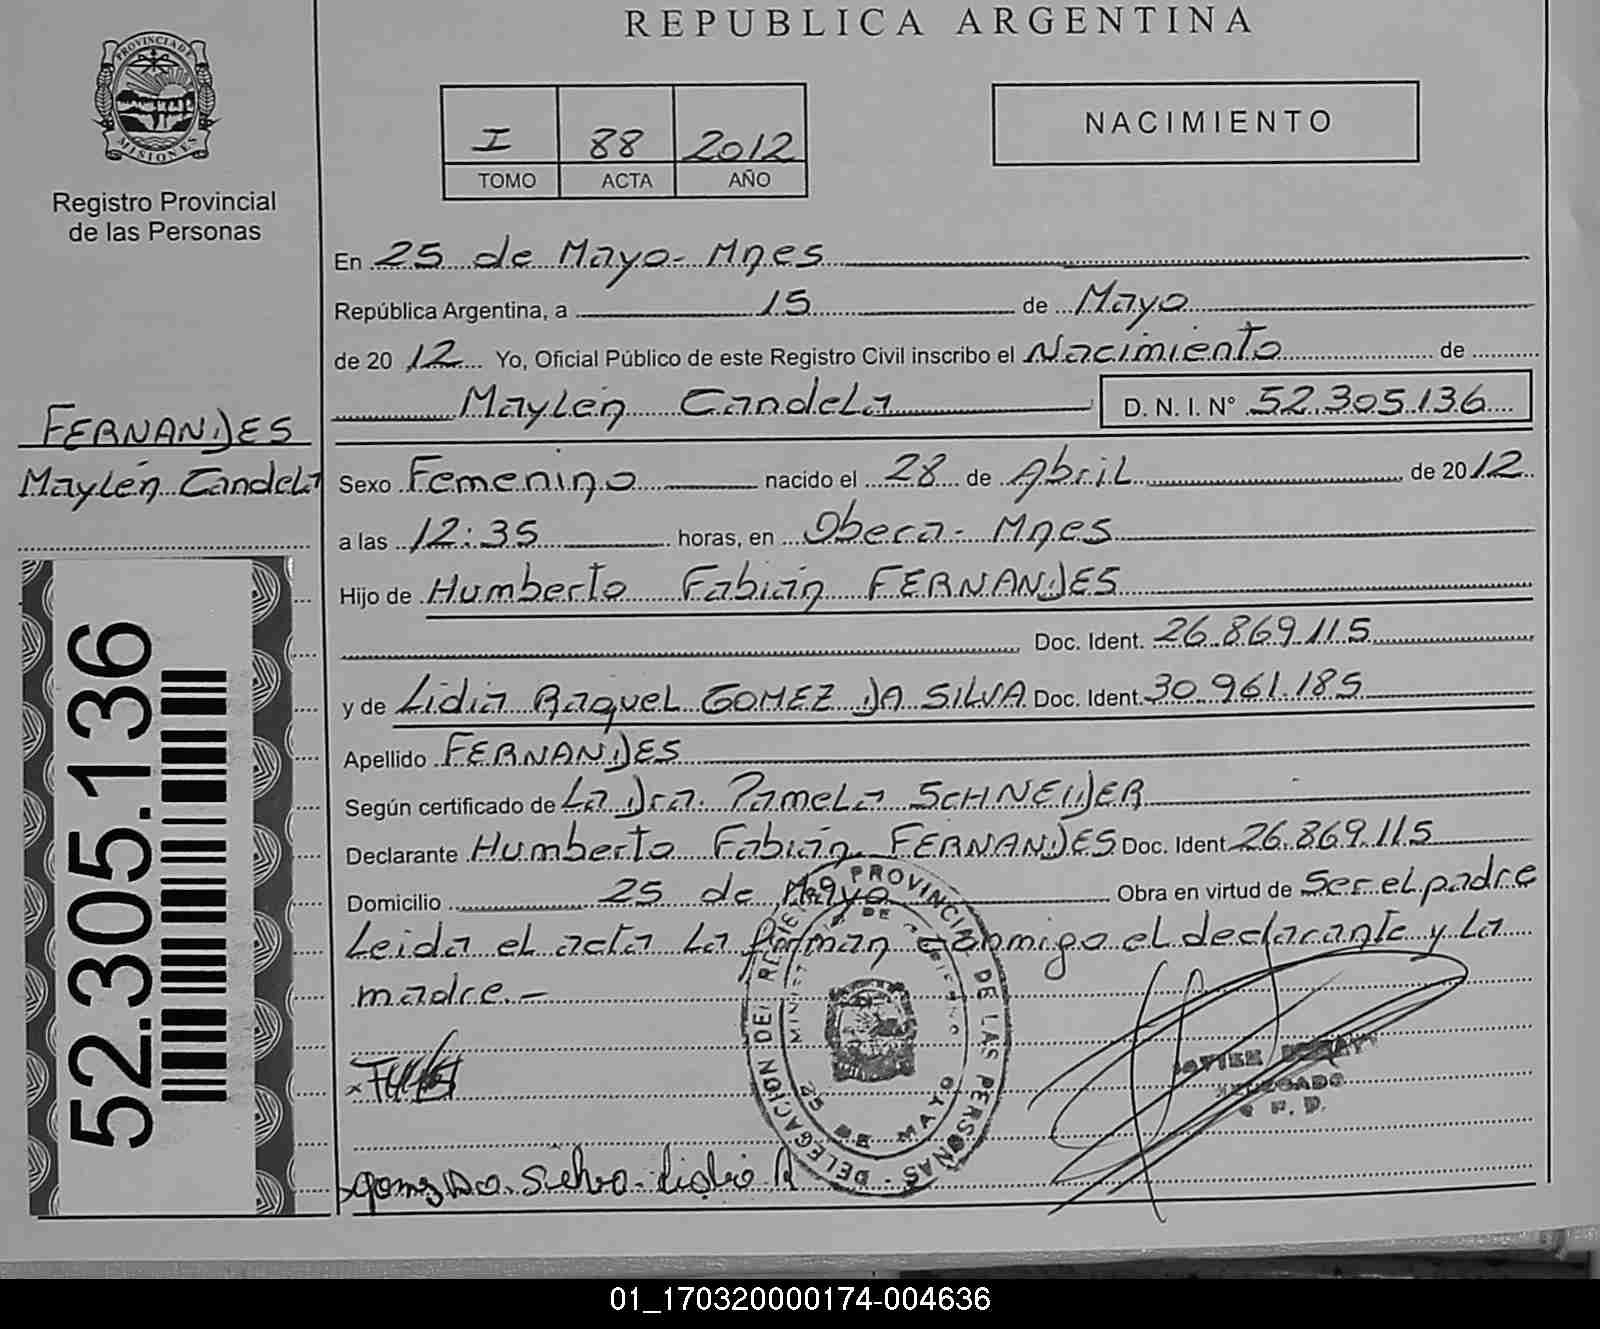 REPUBLICA ARGENTINA
PROVINCIA DE
MISIONES
Registro Provincial
de las Personas
I 88 2012
TOMO ACTA AÑO
NACIMIENTO
En 25 de Mayo - Mnes
República Argentina, a 15 de Mayo
de 2012 Yo, Oficial Público de este Registro Civil inscribo el Nacimiento de
Maylén Candela D. N. I. N° 52.305.136
FERNANDES
Maylén Candela
Sexo Femenino nacido el 28 de Abril de 2012
a las 12:35 horas, en Obera - Mnes
Hijo de Humberto Fabián FERNANDES
Doc. Ident. 26.869.115
y de Lidia Raquel GOMEZ DA SILVA Doc. Ident. 30.961.185
Apellido FERNANDES
Según certificado de La Dra. Pamela SCHNEIDER
Declarante Humberto Fabián FERNANDES Doc. Ident 26.869.115
Domicilio 25 de Mayo Obra en virtud de Ser el padre
Leida el acta la firman conmigo el declarante y la
madre.-
52.305.136
DELEGACION DEL REGISTRO PROVINCIAL DE LAS PERSONAS
25 DE MAYO
Gomez Da Silva Lidia R
01_170320000174-004636